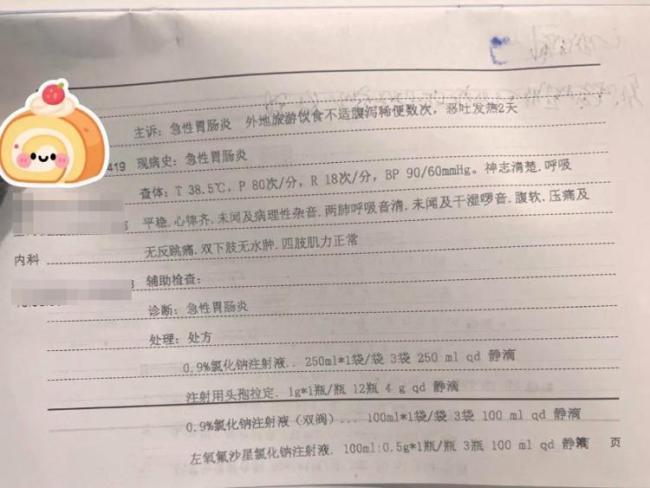 主诉：急性胃肠炎 外地旅游饮食不适腹泻稀便数次，恶吐发热2天
419 现病史：急性胃肠炎
查体：T 38.5℃，P 80次/分，R 18次/分，BP 90/60mmHg。神志清楚.呼吸
平稳.心律齐.未闻及病理性杂音.两肺呼吸音清.未闻及干湿啰音.腹软.压痛及
内科 无反跳痛.双下肢无水肿.四肢肌力正常
辅助检查：
诊断：急性胃肠炎
处理：处方
0.9%氯化钠注射液.. 250ml*1袋/袋 3袋 250 ml qd 静滴
注射用头孢拉定. 1g*1瓶/瓶 12瓶 4 g qd 静滴
0.9%氯化钠注射液（双阀）... 100ml*1袋/袋 3袋 100 ml qd 静滴
左氧氟沙星氯化钠注射液. 100ml:0.5g*1瓶/瓶 3瓶 100 ml qd 静滴 页